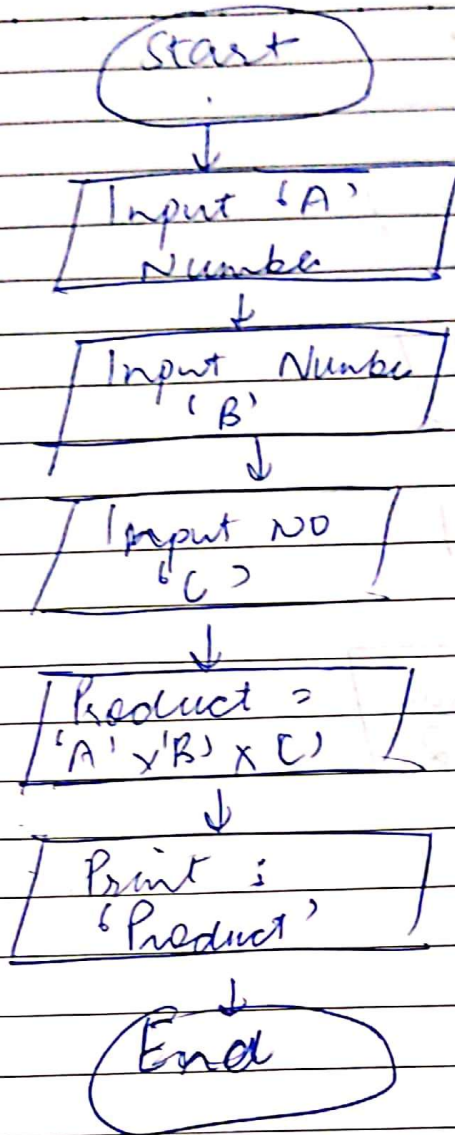 Start
Input 'A'
Number
Input Number
'B'
Input NO
'C'
Product =
'A' x 'B' x C'
Print :
'Product'
End